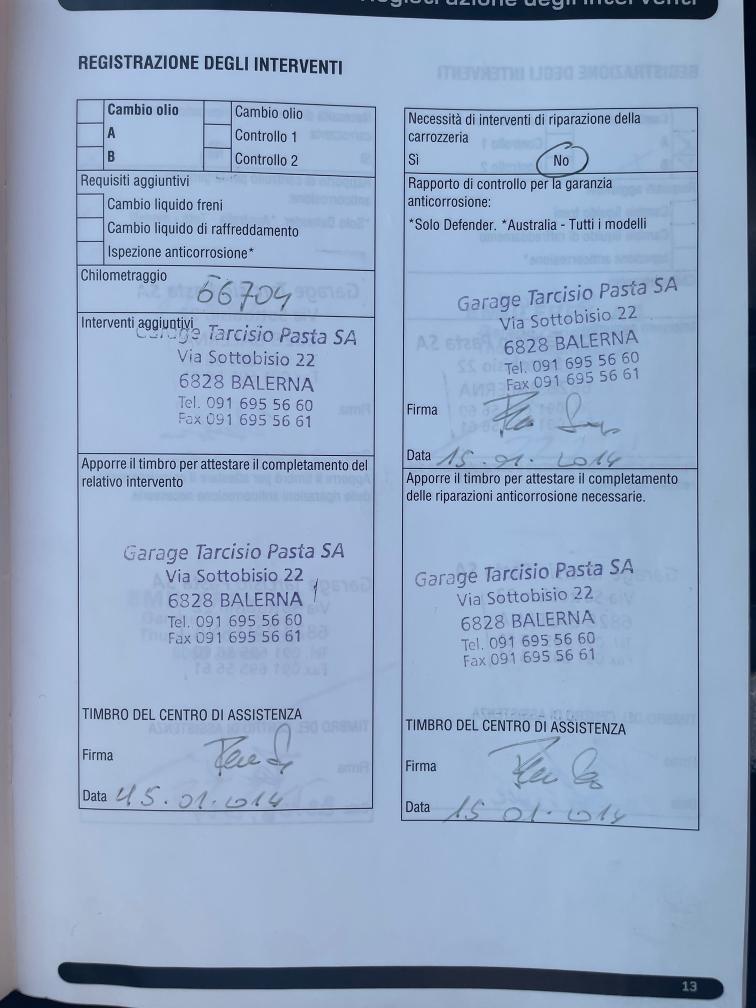 Registrazione degli interventi
REGISTRAZIONE DEGLI INTERVENTI
Cambio olio
A
B
Cambio olio
Controllo 1
Controllo 2
Requisiti aggiuntivi
Cambio liquido freni
Cambio liquido di raffreddamento
Ispezione anticorrosione*
Chilometraggio
66704
Interventi aggiuntivi
Garage Tarcisio Pasta SA
Via Sottobisio 22
6828 BALERNA
Tel. 091 695 56 60
Fax 091 695 56 61
Apporre il timbro per attestare il completamento del
relativo intervento
Garage Tarcisio Pasta SA
Via Sottobisio 22
6828 BALERNA
Tel. 091 695 56 60
Fax 091 695 56 61
TIMBRO DEL CENTRO DI ASSISTENZA
Firma
Data 15.01.2014
Necessità di interventi di riparazione della
carrozzeria
Sì No
Rapporto di controllo per la garanzia
anticorrosione:
*Solo Defender. *Australia - Tutti i modelli
Garage Tarcisio Pasta SA
Via Sottobisio 22
6828 BALERNA
Tel. 091 695 56 60
Fax 091 695 56 61
Firma
Data 15.01.2014
Apporre il timbro per attestare il completamento
delle riparazioni anticorrosione necessarie.
Garage Tarcisio Pasta SA
Via Sottobisio 22
6828 BALERNA
Tel. 091 695 56 60
Fax 091 695 56 61
TIMBRO DEL CENTRO DI ASSISTENZA
Firma
Data 15 01.2014
13